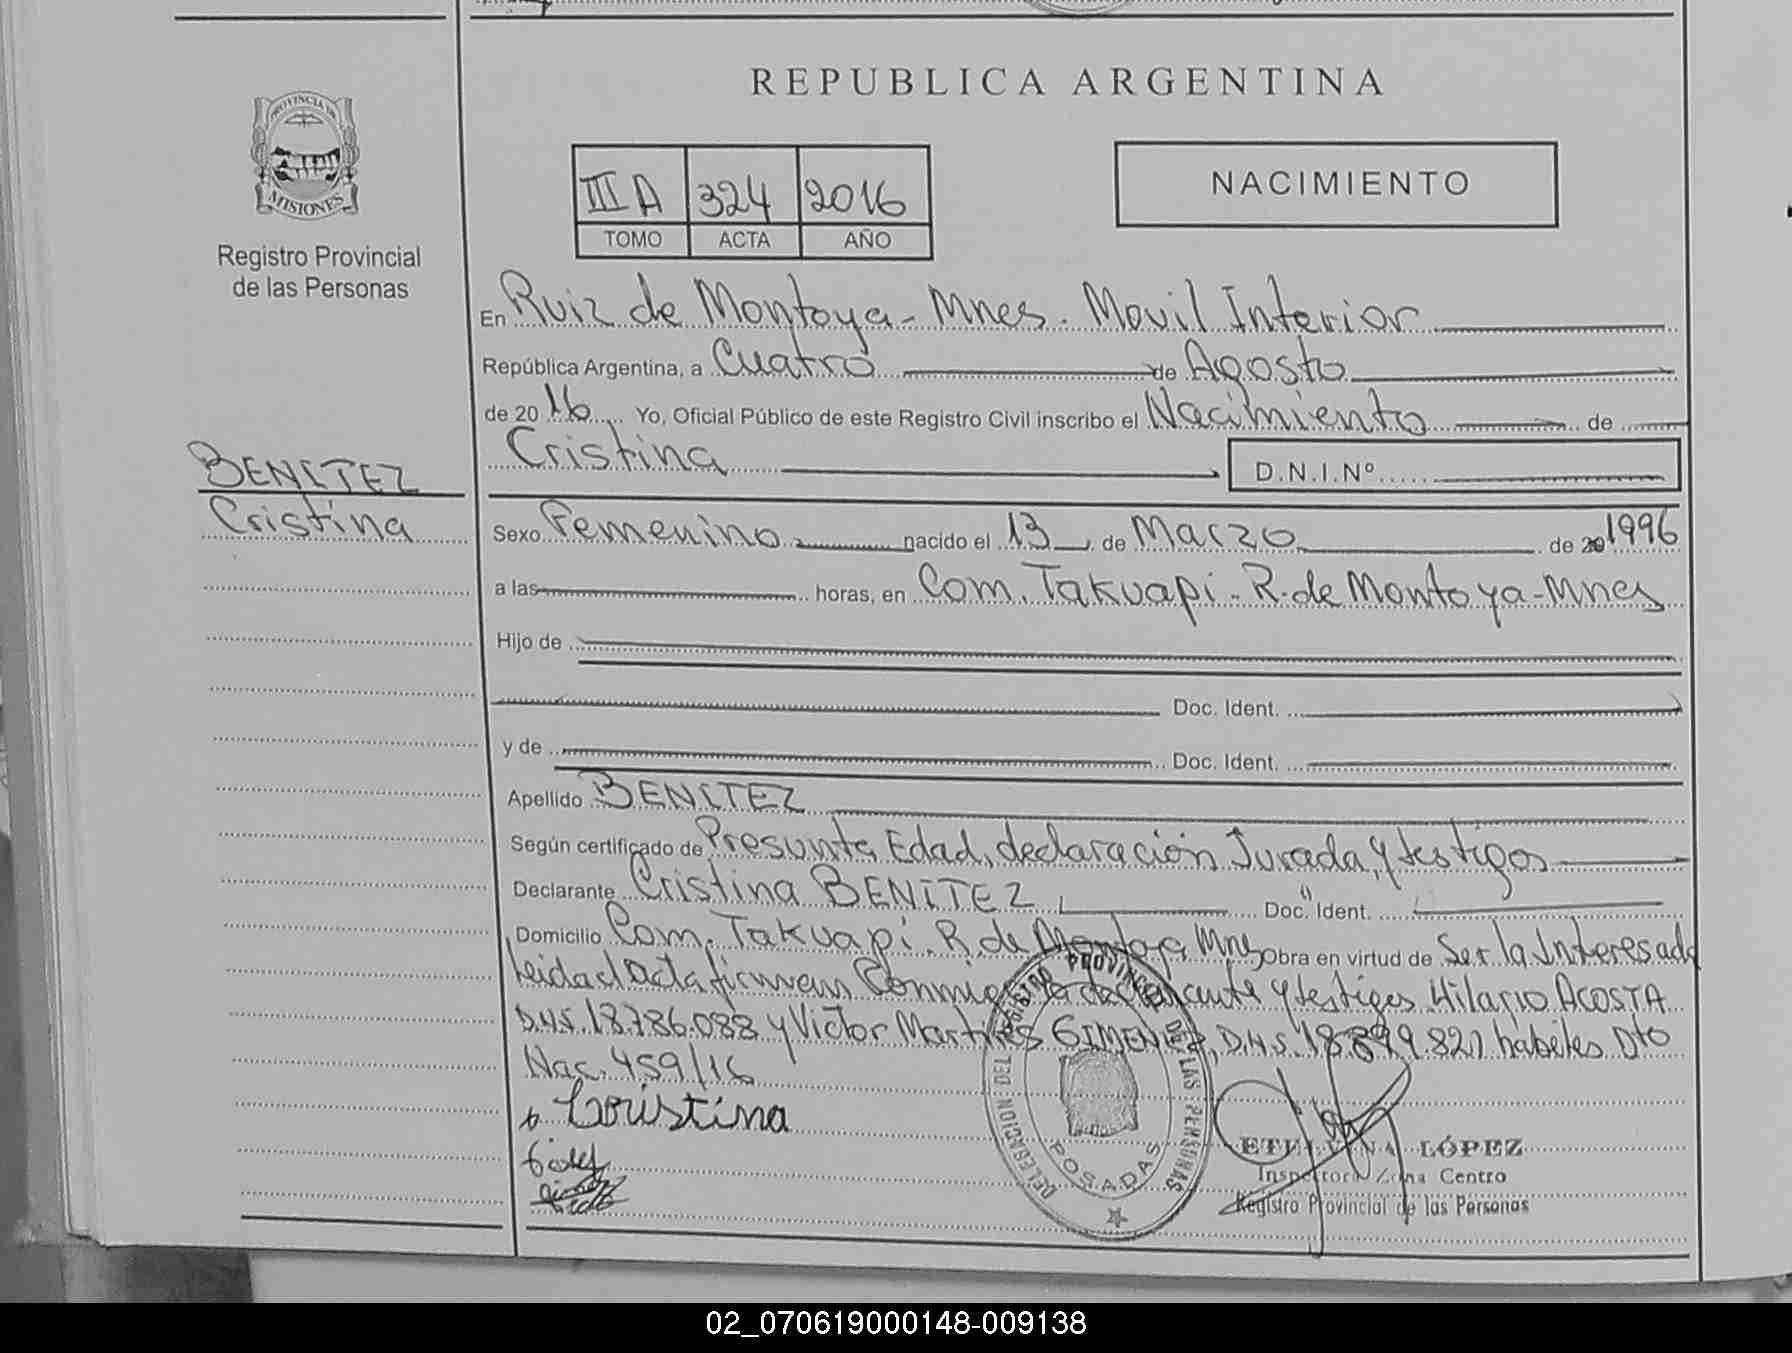 REPUBLICA ARGENTINA
PROVINCIA DE
MISIONES
Registro Provincial
de las Personas
III A 324 2016
TOMO ACTA AÑO
NACIMIENTO
En Ruiz de Montoya - Mnes. Movil Interior
República Argentina, a Cuatro de Agosto
de 20 16 Yo, Oficial Público de este Registro Civil inscribo el Nacimiento de
Cristina D.N.I.Nº
BENITEZ
Cristina
Sexo Femenino nacido el 13 de Marzo de 20 1996
a las horas, en Com. Takuapi - R. de Montoya - Mnes
Hijo de
Doc. Ident.
y de Doc. Ident.
Apellido BENITEZ
Según certificado de Presunta Edad, declaración Jurada, y testigos
Declarante Cristina BENITEZ Doc. Ident.
Domicilio Com. Takuapi. R. de Montoya Mnes Obra en virtud de Ser la Interesada
Leida el Acta firman Conmigo la declarante y testigos Hilario ACOSTA
D.N.I. 18.786.088 y Victor Martires GIMENEZ, D.N.I. 18.899.821 habiles Dto
Nac. 459/16
Cristina
DELEGACION DEL REGISTRO PROVINCIAL DE LAS PERSONAS
POSADAS
ETELVINA LÓPEZ
Inspectora Zona Centro
Registro Provincial de las Personas
02_070619000148-009138